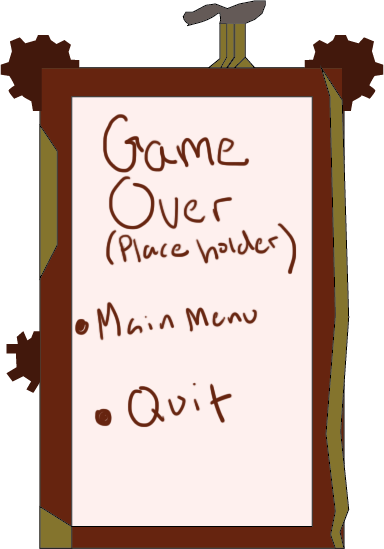 Game
Over
(Place holder)
• Main Menu
• Quit